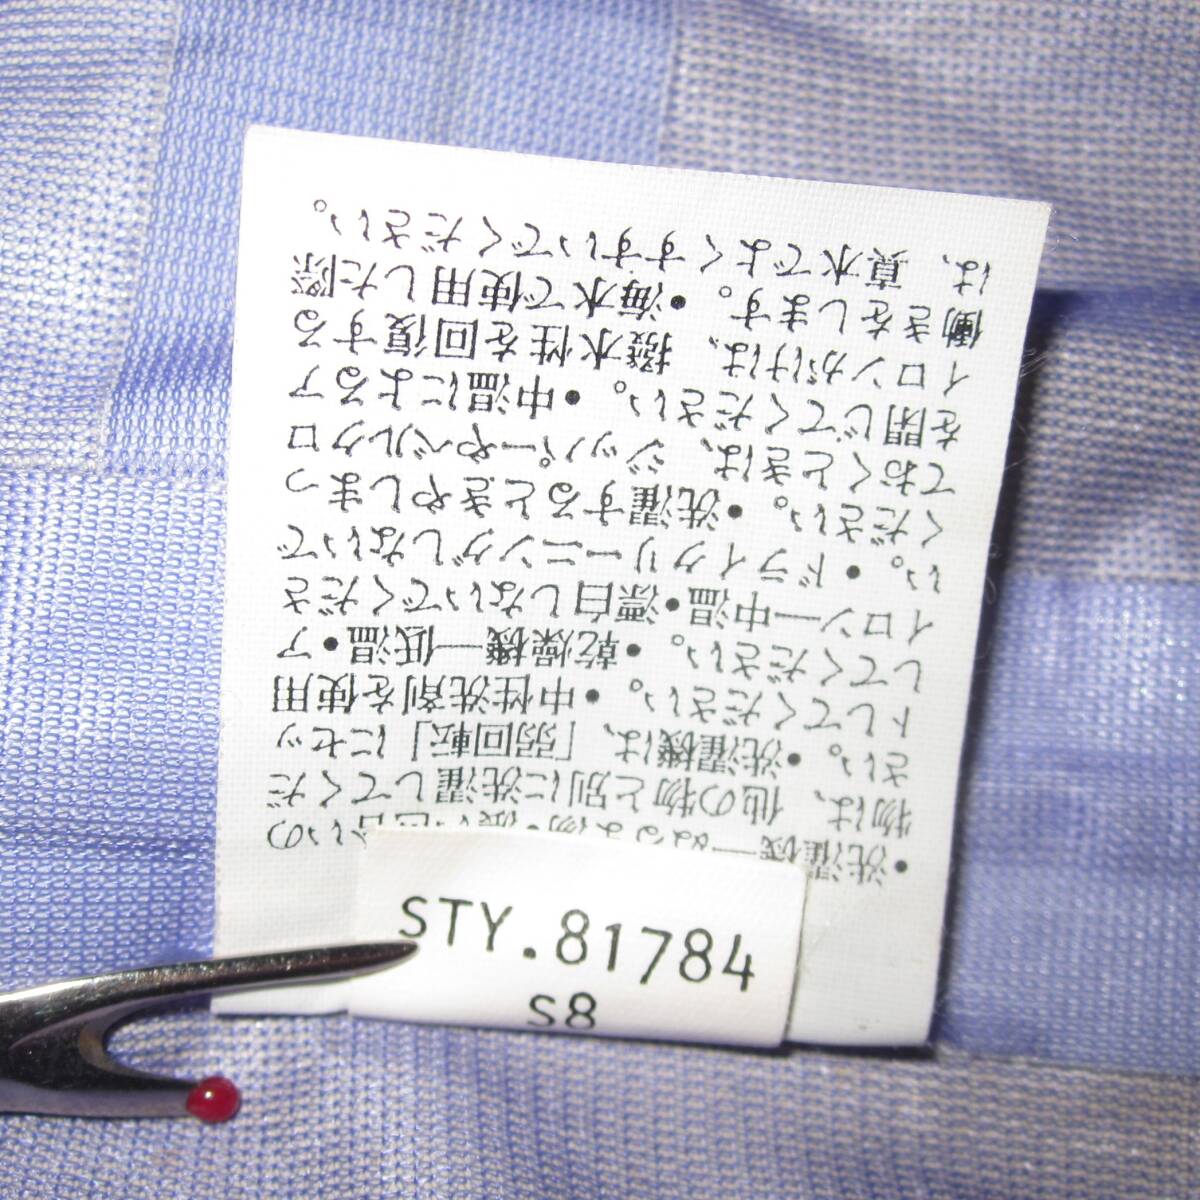 •洗濯機―ぬるま湯•濃い色合いの
物は、他の物と別に洗濯してくだ
さい。•洗濯機は、「弱回転」にセッ
トしてください。•中性洗剤を使用
してください。•乾燥機―低温•ア
イロン―中温•漂白しないでくださ
い。•ドライクリーニングしないで
ください。•洗濯するときやしまっ
ておくときは、ジッパーやベルクロ
を閉じてください。•中温によるア
イロンがけは、撥水性を回復する
働きをします。•海水で使用した際
は、真水でよくすすいでください。
STY.81784
S8